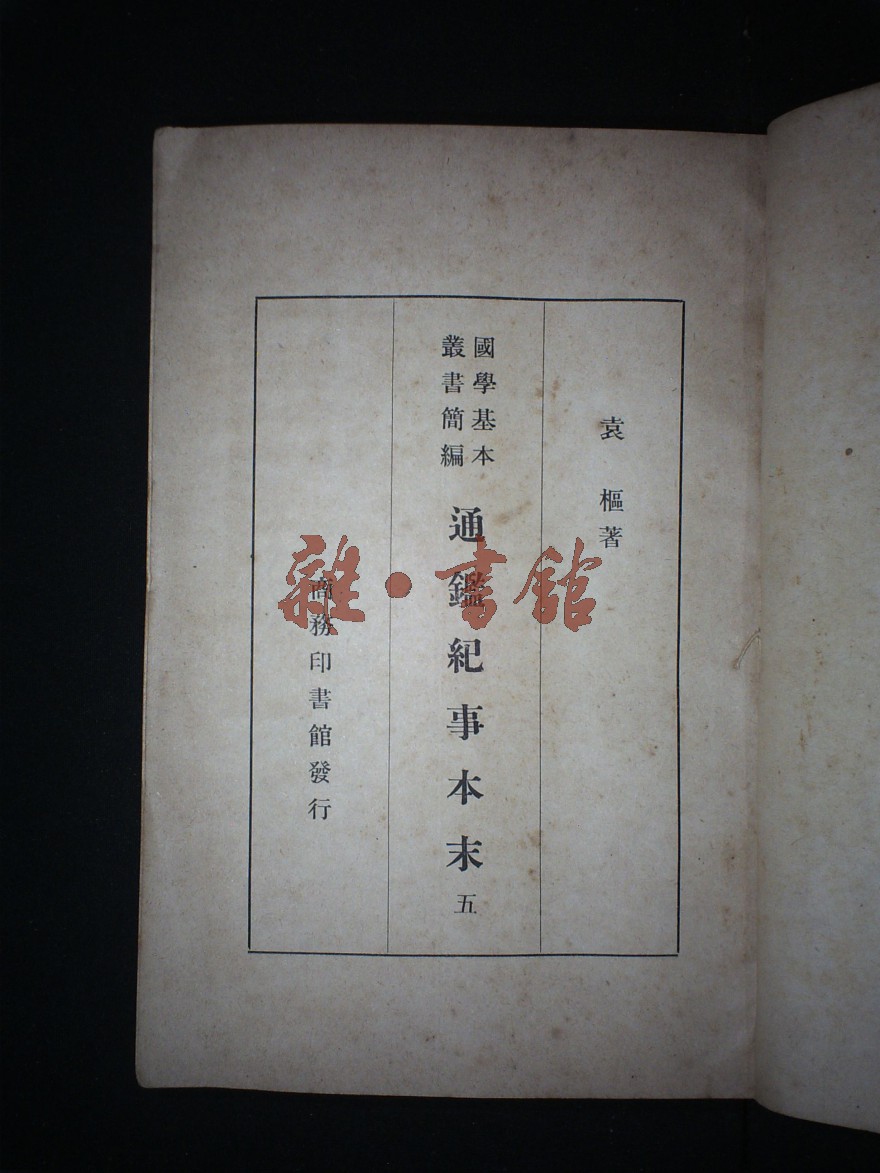 袁樞著
國學基本
叢書簡編
通鑑紀事本末 五
商務印書館發行
雜·書館